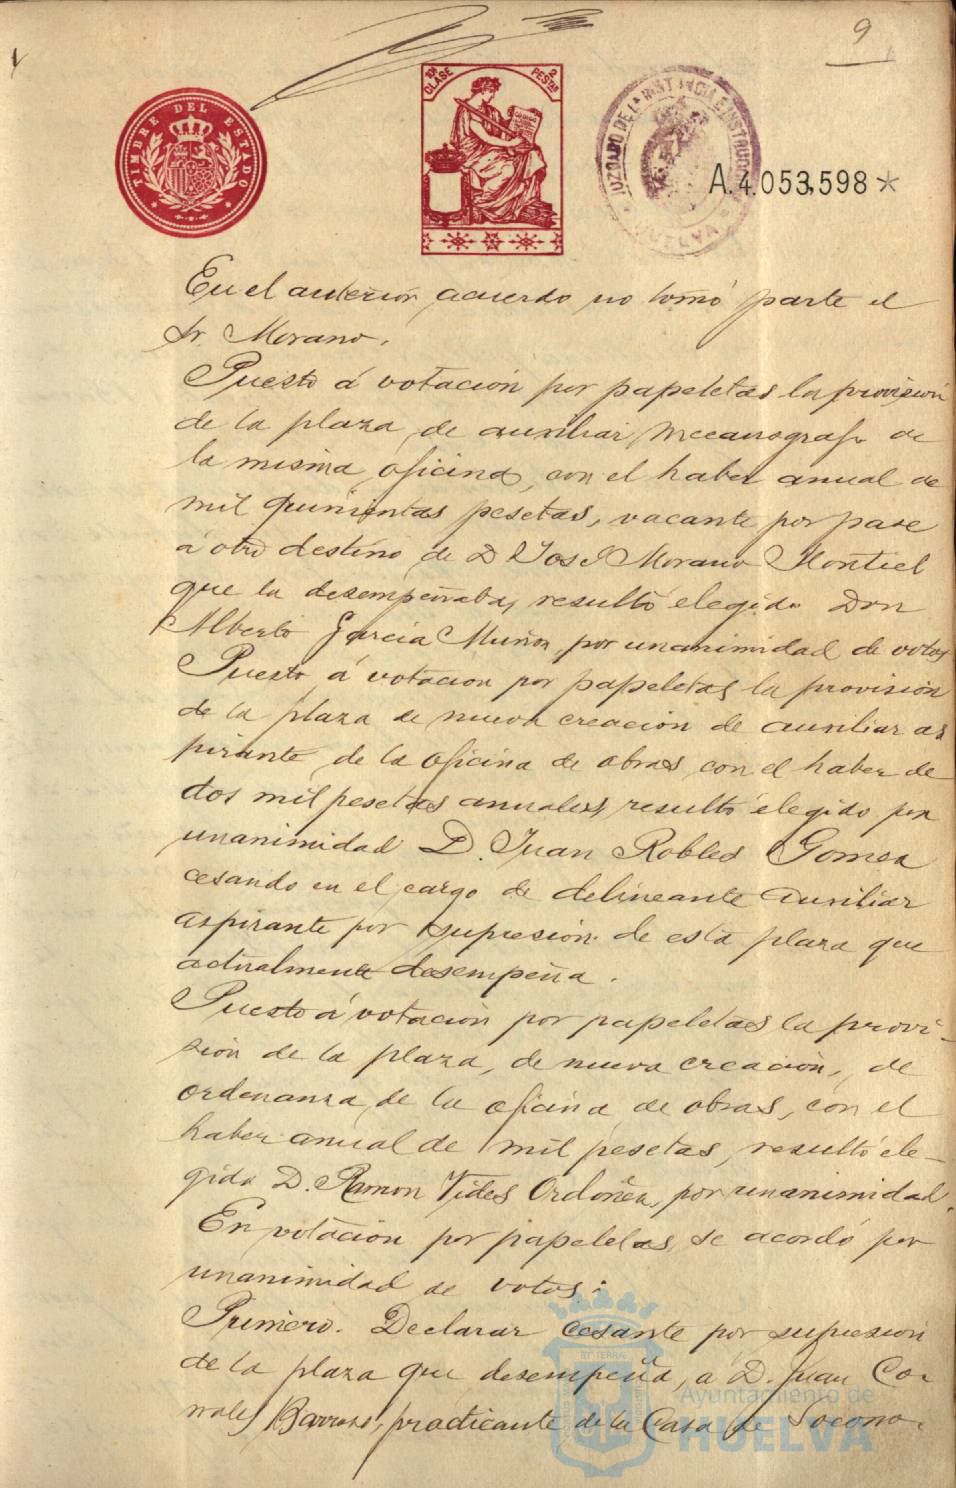 9
TIMBRE DEL ESTADO
10ª CLASE
2 PESTAS
JUZGADO DE 1ª INSTANCIA E INSTRUCCION
HUELVA
A.4.053,598*
En el anterior acuerdo no tomó parte el
Sr. Morano.
Puesto á votación por papeletas la provisión
de la plaza de auxiliar mecanografo de
la misma oficina, con el haber anual de
mil quinientas pesetas, vacante por pase
á otro destino de D José Morano Montiel
que la desempeñaba, resultó elegido Don
Alberto García Muñoz, por unanimidad de votos
Puesto á votacion por papeletas la provisión
de la plaza de nueva creación de auxiliar as
pirante de la oficina de obras con el haber de
dos mil pesetas anuales, resultó elegido por
unanimidad D. Juan Robles Gomez
cesando en el cargo de delineante auxiliar
aspirante por supresión de esta plaza que
actualmente desempeña.
Puesto á votación por papeletas la provi-
sión de la plaza, de nueva creación, de
ordenanza de la oficina de obras, con el
haber anual de mil pesetas, resultó ele-
gido D. Ramon Vides Ordoñez, por unanimidad.
En votación por papeletas se acordó por
unanimidad de votos:
Primero. Declarar cesante por supresion
de la plaza que desempeña, a D. Juan Co-
rrales Barroso, practicante de la Casa de Socorro.
Ayuntamiento de
HUELVA